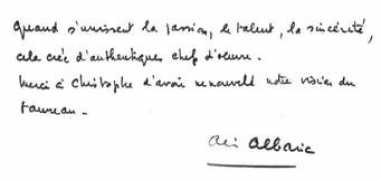 Quand s'unissent la passion, le talent, la sincérité,
cela crée d'authentiques chef d'œuvre.
Merci à Christophe d'avoir renouvelé notre vision du
taureau.
Albaric